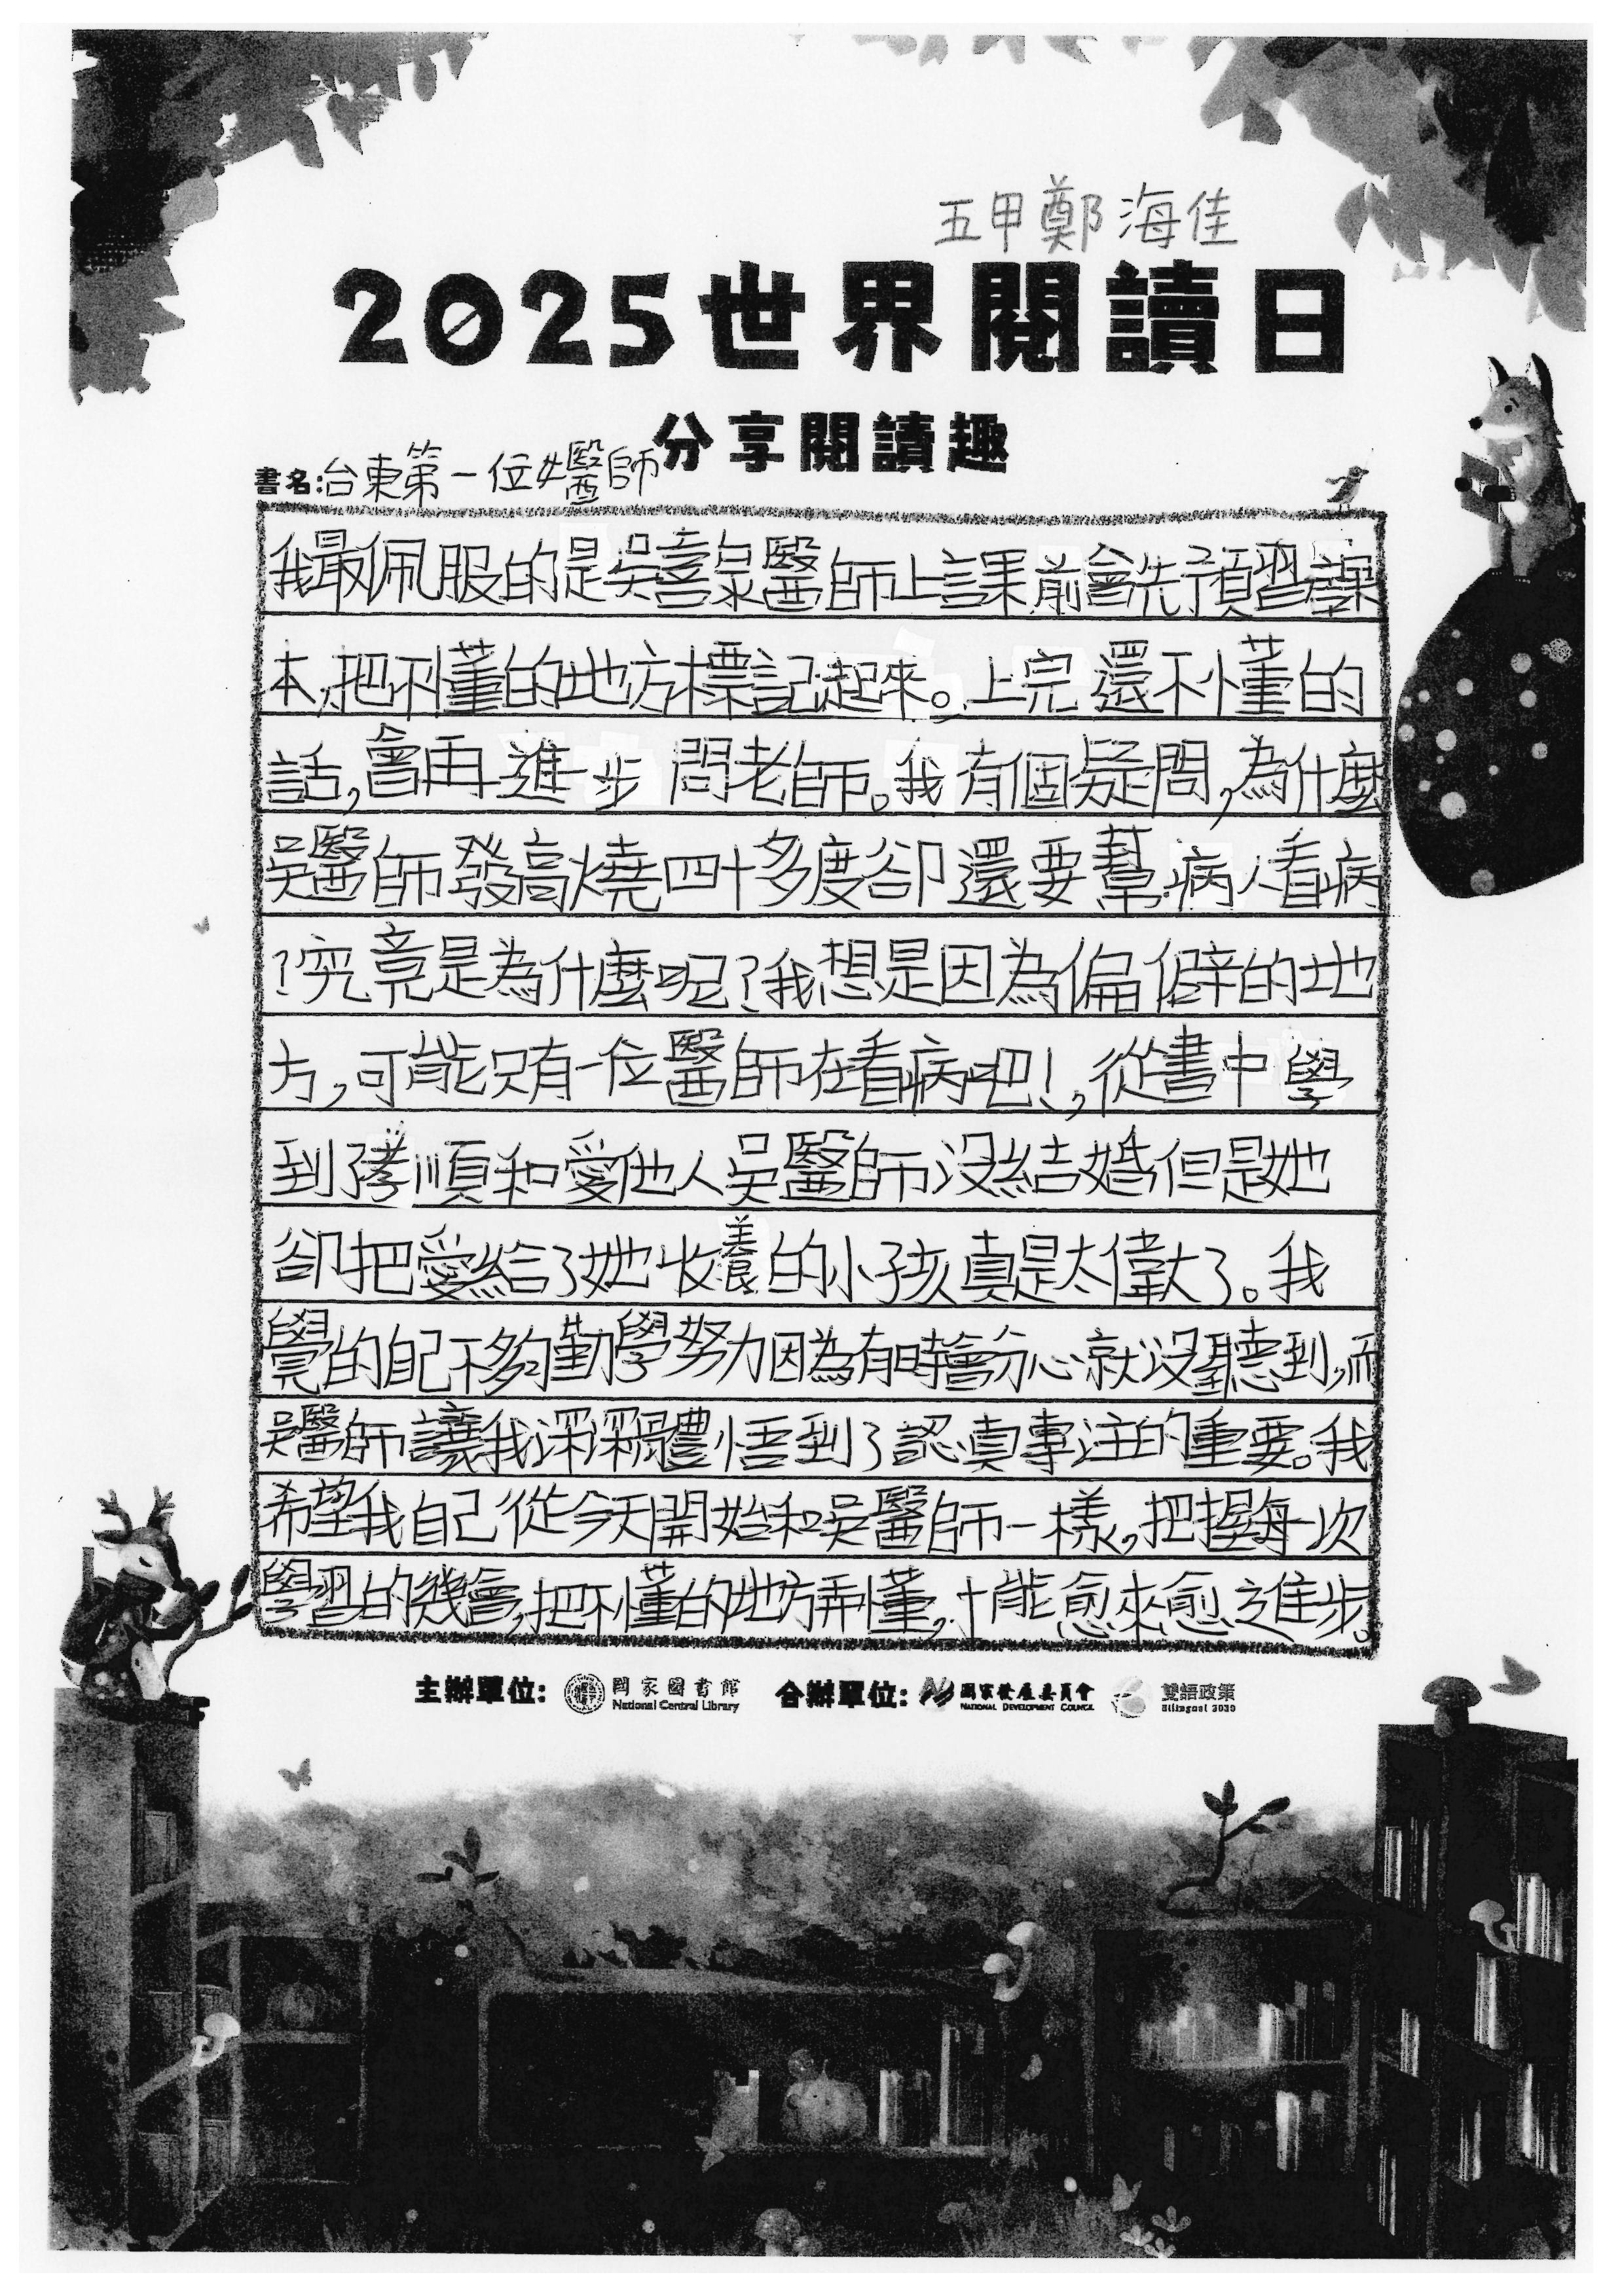 五甲鄭海佳
2025世界閱讀日
分享閱讀趣
書名:台東第一位女醫師
我最佩服的是吳喜泉醫師上課前會先預習課
本,把不懂的地方標記起來。上完還不懂的
話,會再進一步問老師。我有個疑問,為什麼
吳醫師發高燒四十多度卻還要幫病人看病
?究竟是為什麼呢?我想是因為偏僻的地
方,可能只有一位醫師在看病吧!,從書中學
到孝順和愛他人吳醫師沒結婚但是她
卻把愛給了她收養的小孩真是太偉大了。我
覺的自己不夠勤學努力因為有時會分心就沒聽到,而
吳醫師讓我深深體悟到了認真專注的重要。我
希望我自己從今天開始和吳醫師一樣,把握每一次
學習的幾會,把不懂的地方弄懂,才能愈來愈之進步。
主辦單位: 國家圖書館 合辦單位: 國家發展委員會 雙語政策
National Central Library NATIONAL DEVELOPMENT COUNCIL Bilingual 2030